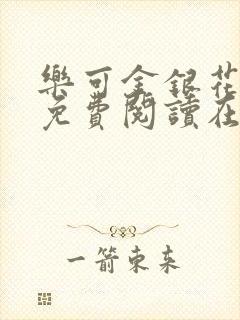 樂可金銀花
免費閱讀在
一箭東來